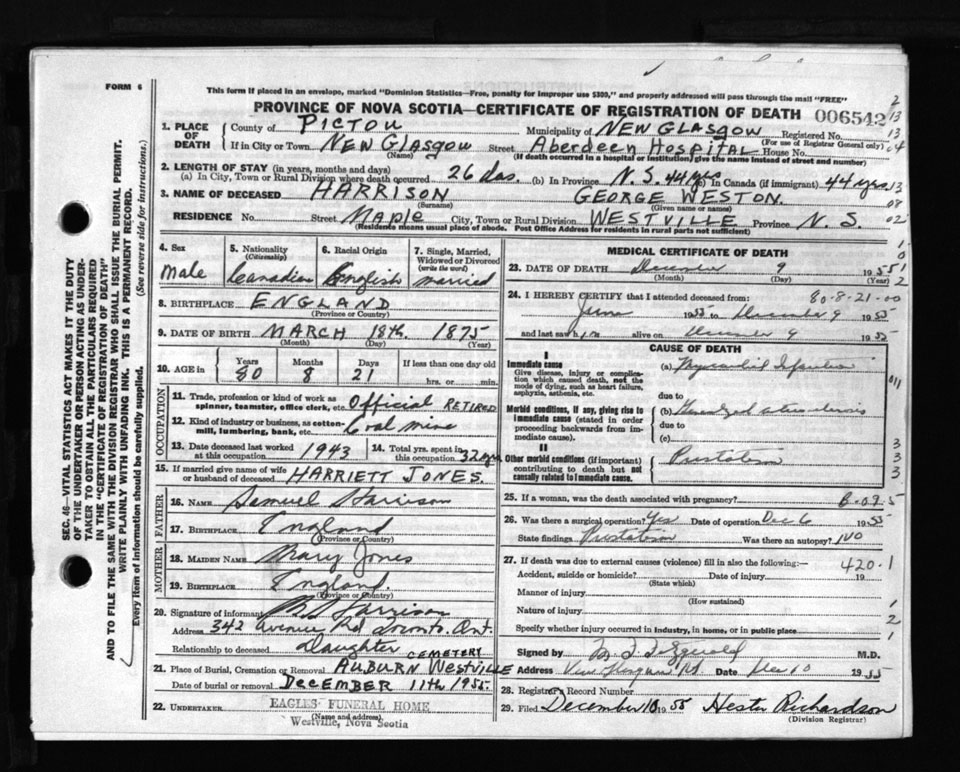 FORM 6
This form if placed in an envelope, marked "Dominion Statistics—Free, penalty for improper use $300," and properly addressed will pass through the mail "FREE"
PROVINCE OF NOVA SCOTIA—CERTIFICATE OF REGISTRATION OF DEATH 006542
1. PLACE OF DEATH
County of PICTOU Municipality of NEW GLASGOW Registered No.
(For use of Registrar General only)
If in City or Town NEW GLASGOW Street Aberdeen Hospital House No.
(Name) (If death occurred in a hospital or institution, give the name instead of street and number)
2. LENGTH OF STAY (in years, months and days)
(a) In City, Town or Rural Division where death occurred 26 das. (b) In Province N.S. 44 yrs (c) In Canada (if immigrant) 44 yrs
3. NAME OF DECEASED HARRISON GEORGE WESTON.
(Surname) (Given name or names)
RESIDENCE No. Street Maple City, Town or Rural Division WESTVILLE Province N. S.
(Residence means usual place of abode. Post Office Address for residents in rural parts not sufficient)
4. Sex
Male
5. Nationality (Citizenship)
Canadian
6. Racial Origin
English
7. Single, Married, Widowed or Divorced (write the word)
married
8. BIRTHPLACE ENGLAND
(Province or Country)
9. DATE OF BIRTH MARCH 18th. 1875
(Month) (Day) (Year)
10. AGE in Years Months Days If less than one day
80 8 21 hrs. or min.
OCCUPATION
11. Trade, profession or kind of work as spinner, teamster, office clerk, etc. Official RETIRED
12. Kind of industry or business, as cotton-mill, lumbering, bank, etc. Coal mine
13. Date deceased last worked at this occupation 1943
14. Total yrs. spent in this occupation 32 yrs.
15. If married give name of wife or husband of deceased HARRIETT JONES.
FATHER
16. NAME Samuel Harrison
17. BIRTHPLACE England
(Province or Country)
MOTHER
18. MAIDEN NAME Mary Jones
19. BIRTHPLACE England.
(Province or Country)
20. Signature of informant Harrison
Address 342 Avenue Rd Toronto. Ont.
Relationship to deceased Daughter
21. Place of Burial, Cremation or Removal AUBURN CEMETERY WESTVILLE
Date of burial or removal DECEMBER 11th 1955.
22. UNDERTAKER EAGLES' FUNERAL HOME
(Name and Address)
Westville, Nova Scotia
MEDICAL CERTIFICATE OF DEATH
23. DATE OF DEATH December 9 1955
(Month) (Day) (Year)
24. I HEREBY CERTIFY that I attended deceased from: 80-8-21-00
June 1955 to December 9 1955
and last saw him alive on December 9 1955
CAUSE OF DEATH
I
Immediate cause
Give disease, injury or complication which caused death, not the mode of dying, such as heart failure, asphyxia, asthenia, etc.
(a) Myocardial Infarction
due to
Morbid conditions, if any, giving rise to immediate cause (stated in order proceeding backwards from immediate cause).
(b)
due to
(c)
II
Other morbid conditions (if important) contributing to death but not causally related to immediate cause.
25. If a woman, was the death associated with pregnancy?
26. Was there a surgical operation? Yes Date of operation Dec 6 1955
State findings Was there an autopsy? NO
27. If death was due to external causes (violence) fill in also the following:— 420.1
Accident, suicide or homicide? Date of injury 19
(State which)
Manner of injury
(How sustained)
Nature of injury
Specify whether injury occurred in industry, in home, or in public place
Signed by M.D.
Address New Glasgow N.S. Date Dec 10 1955
28. Registrar's Record Number
29. Filed December 10 1955 Hester Richardson
(Division Registrar)
SEC. 46—VITAL STATISTICS ACT MAKES IT THE DUTY OF THE UNDERTAKER OR PERSON ACTING AS UNDERTAKER TO OBTAIN ALL THE PARTICULARS REQUIRED IN THE "CERTIFICATE OF REGISTRATION OF DEATH" AND TO FILE THE SAME WITH THE DIVISION REGISTRAR WHO SHALL ISSUE THE BURIAL PERMIT.
WRITE PLAINLY WITH UNFADING INK. THIS IS A PERMANENT RECORD.
Every item of information should be carefully supplied. (See reverse side for instructions.)